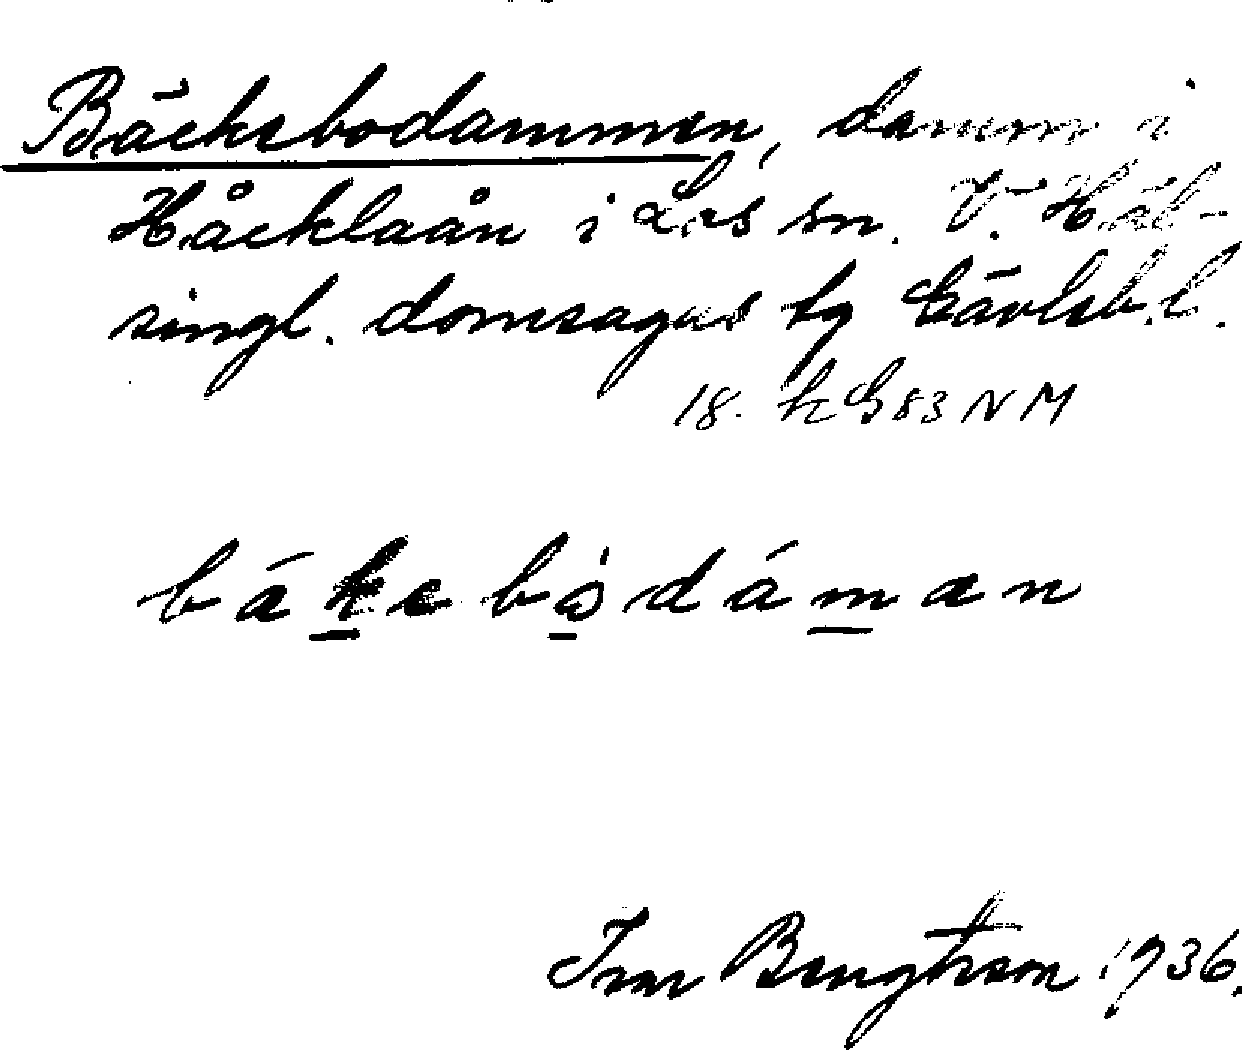 Bäckebodammen, damm i
Håcklaån i Los sn. V. Häl-
singl. domsagas tg Gävleb. l.
18. k G 83 N M
Ivar Bengtsson 1936.